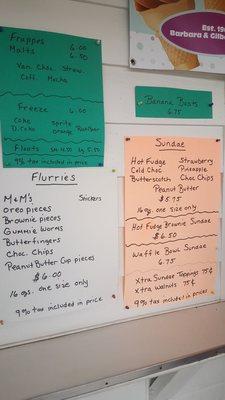 Frappes 6.00
Malts 6.50
Van. Choc. Straw.
Coff. Mocha
Freeze 6.00
Coke Sprite
D. Coke Orange Root Beer
Floats
9% tax included in price
Flurries
M&M's Snickers
Oreo pieces
Brownie pieces
Gummie Worms
Butterfingers
Choc. Chips
Peanut Butter Cup pieces
$6.00
16 ozs. one size only
9% tax included in price
Est. 19
Barbara &
Banana Boats
6.75
Sundae
Hot Fudge Strawberry
Cold Choc Pineapple
Butterscotch Choc Chips
Peanut Butter
$5.75
16 ozs. one size only
Hot Fudge Brownie Sundae
$6.50
Waffle Bowl Sundae
6.75
Xtra Sundae Toppings 75¢
Xtra Walnuts 75¢
9% tax included in prices